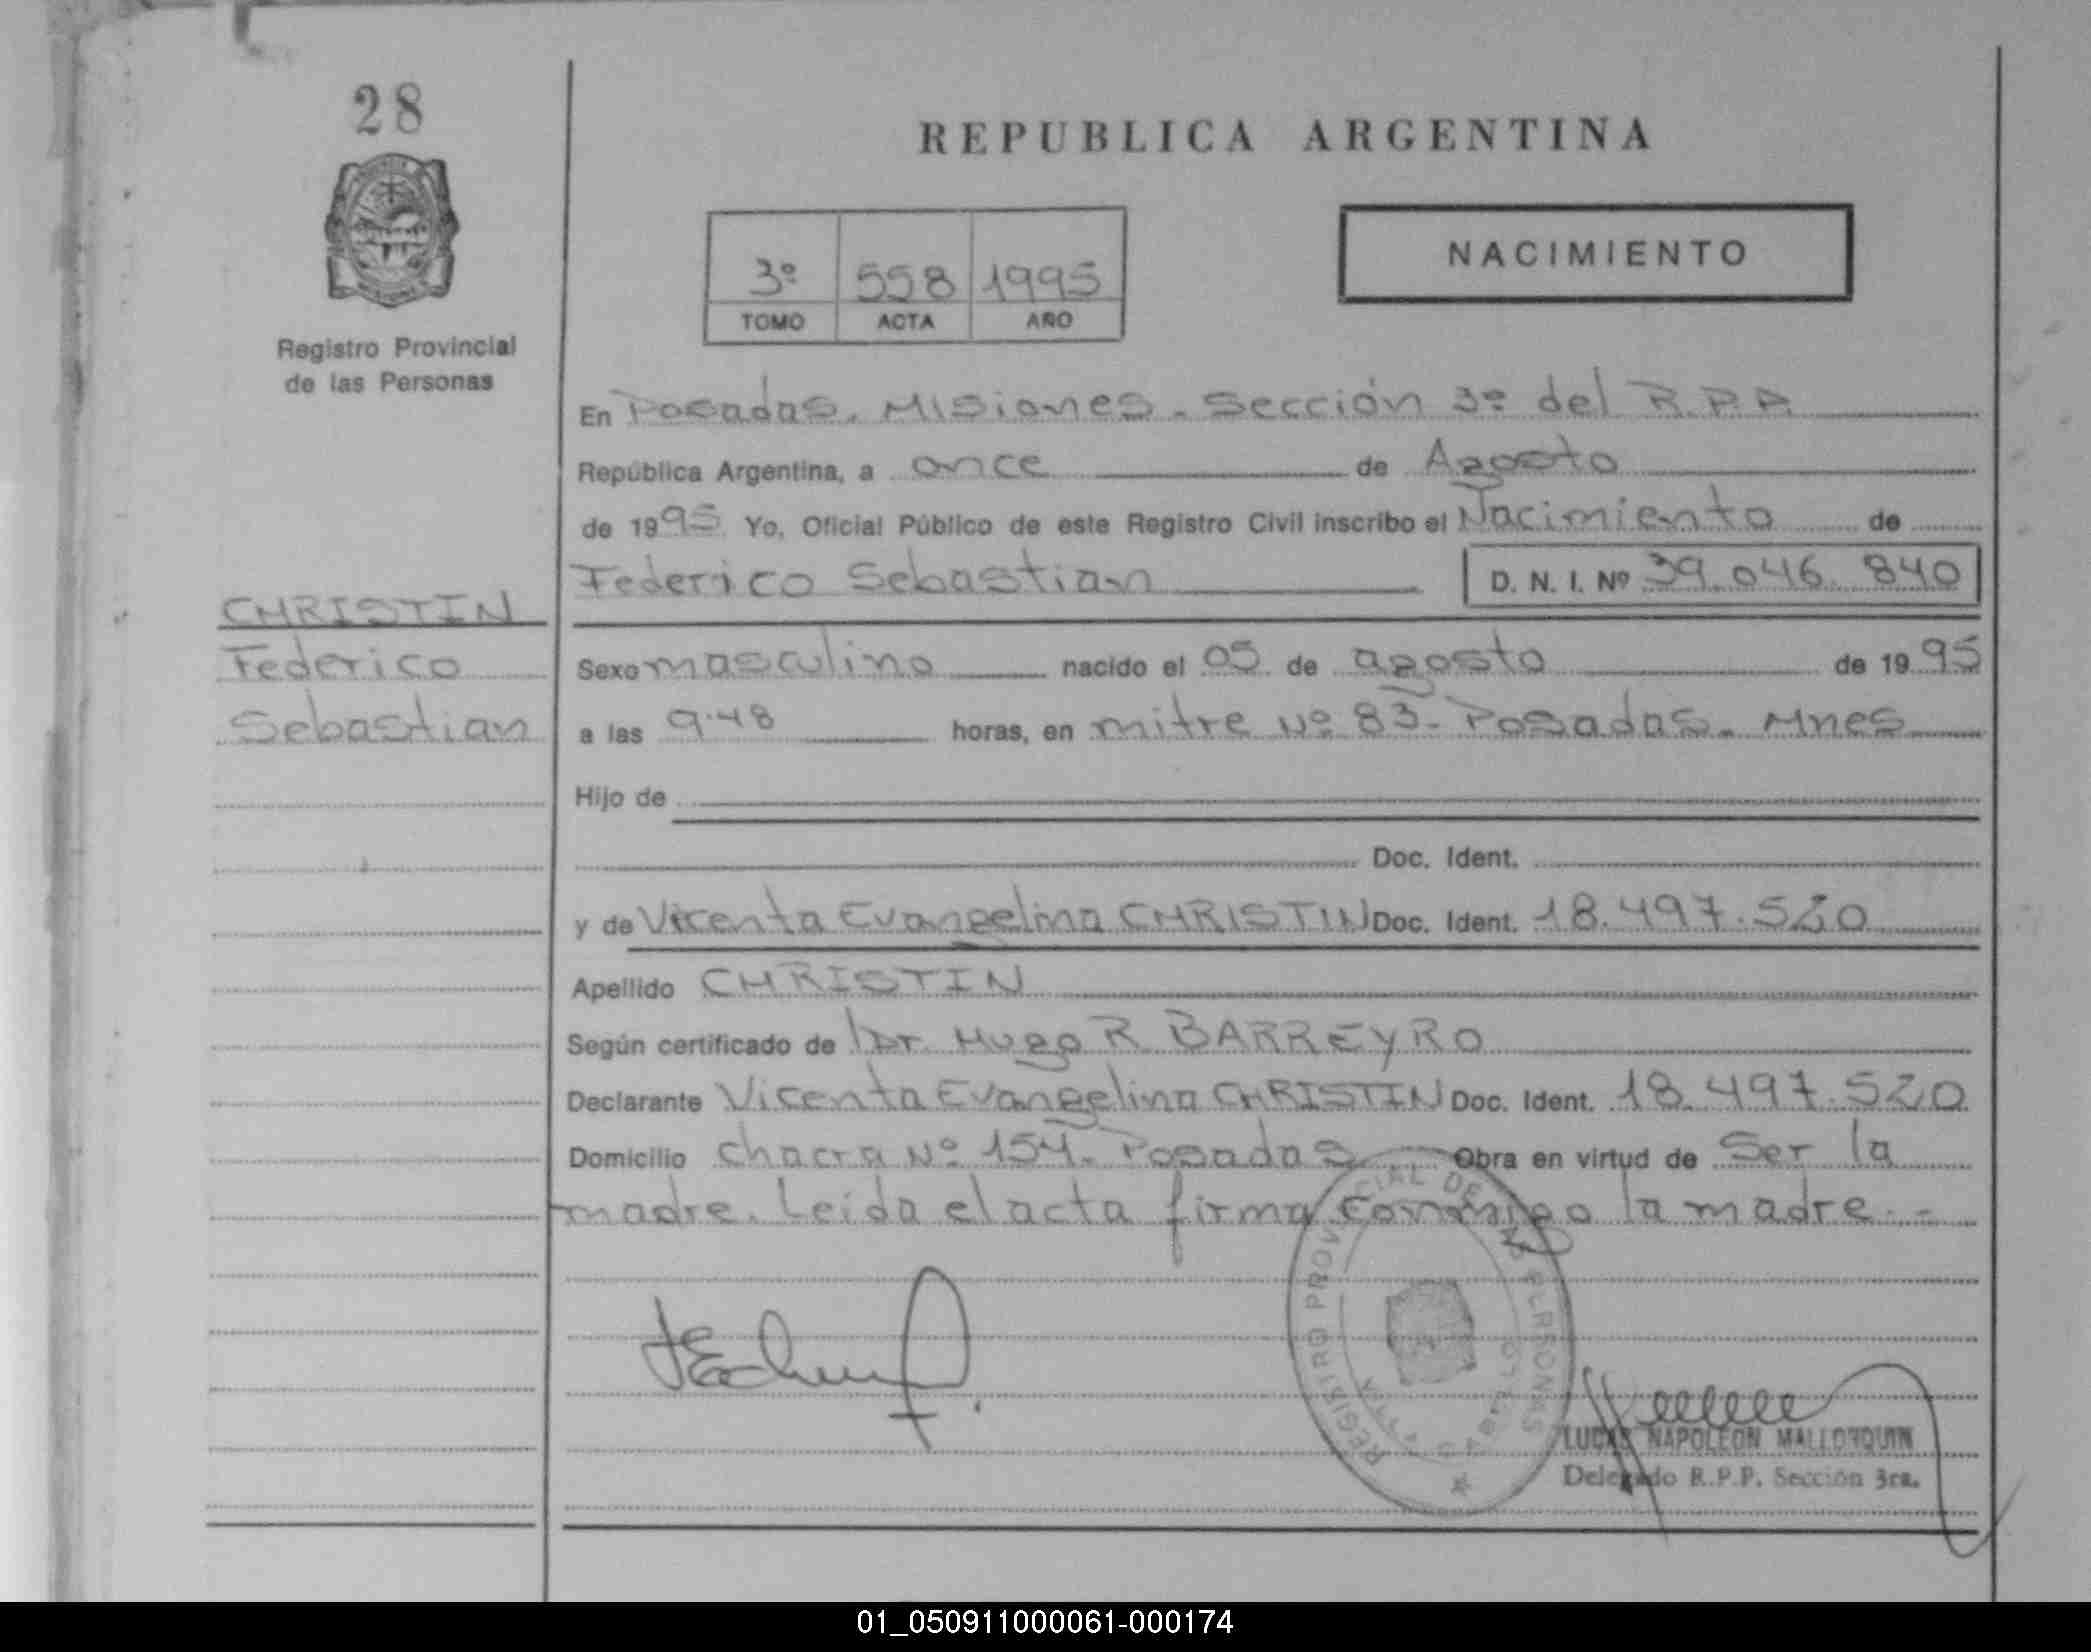 28
REPUBLICA ARGENTINA
NACIMIENTO
3º 558 1995
TOMO ACTA AÑO
Registro Provincial
de las Personas
En Posadas. Misiones. Sección 3º del R.P.P.
República Argentina, a once de Agosto
de 1995 Yo, Oficial Público de este Registro Civil inscribo el Nacimiento de
Federico Sebastian D. N. I. Nº 39.046.840
CHRISTIN
Federico
Sebastian
Sexo masculino nacido el 05 de agosto de 1995
a las 9.48 horas, en mitre Nº 83. Posadas. Mnes
Hijo de
Doc. Ident.
y de Vicenta Evangelina CHRISTIN Doc. Ident. 18.497.520
Apellido CHRISTIN
Según certificado de Dr. Hugo R BARREYRO
Declarante Vicenta Evangelina CHRISTIN Doc. Ident. 18.497.520
Domicilio chacra Nº 154. Posadas Obra en virtud de Ser la
madre. Leida el acta firma conmigo la madre. -
REGISTRO PROVINCIAL DE LAS PERSONAS
LUCAS NAPOLEON MALLORQUIN
Delegado R.P.P. Sección 3ra.
01_050911000061-000174